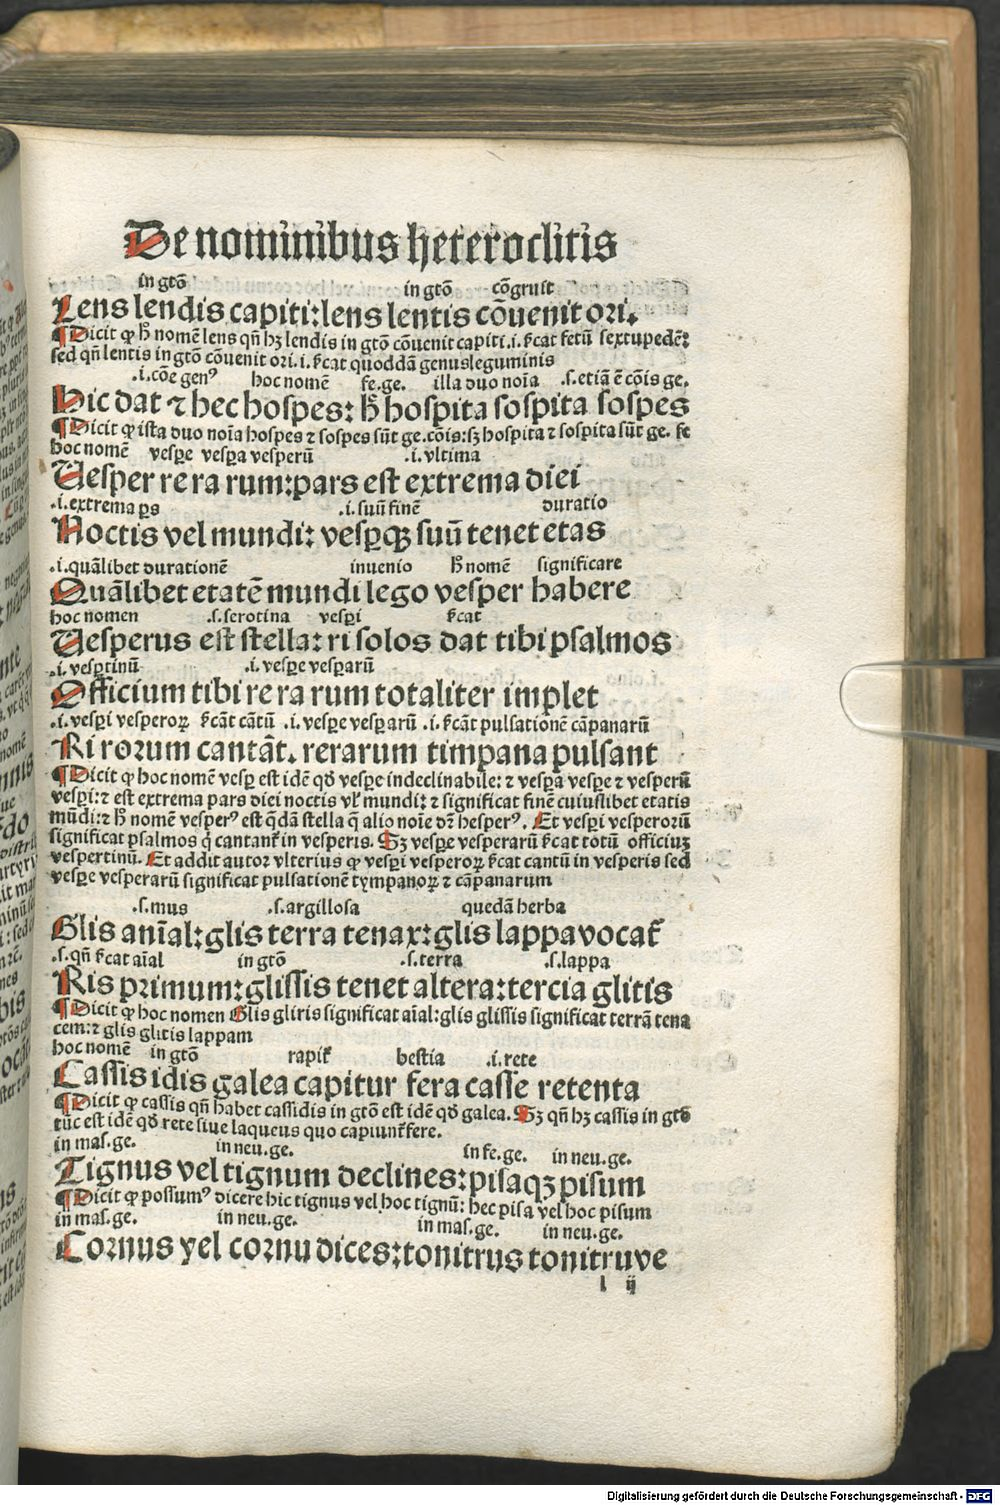 De nominibus heteroclitis
in gtō in gtō cōgruit
Lens lendis capiti: lens lentis cōuenit ori.
¶ Dicit ꝙ hͦ nomē lens qn̄ hꝫ lendis in gtō cōuenit capiti .i. ſcat fetū sextupedē:
sed qn̄ lentis in gtō cōuenit ori .i. ſcat quoddā genus leguminis
.i. cōe genꝰ hoc nomē fe. ge. illa duo noīa .s. etiā ē cōis ge.
Hic dat ⁊ hec hospes: hͦ hospita sospita sospes
¶ Dicit ꝙ ista duo noīa hospes ⁊ sospes sūt ge. cōis: sꝫ hospita ⁊ sospita sūt ge. fe
hoc nomē vespe̲ vesp̲a vesperū .i. vltima
Uesper re ra rum: pars est extrema diei
.i. extrema p̲s .i. suū finē duratio
Noctis vel mundi: vesp̲qꝫ suū tenet etas
.i. quālibet durationē inuenio hͦ nomē significare
Quālibet etatē mundi lego vesper habere
hoc nomen .s. serotina vesp̲i ſcat
Uesperus est stella: ri solos dat tibi psalmos
.i. vesp̲tinū .i. vesp̲e vesp̲arū
Officium tibi re ra rum totaliter implet
.i. vesp̲i vesperoꝝ ſcāt cātū .i. vesp̲e vesp̲arū .i. ſcāt pulsationē cāpanarū
Ri rorum cantāt. rerarum timpana pulsant
¶ Dicit ꝙ hoc nomē vesp̲ est idē qd̄ vesp̲e indeclinabile: ⁊ vesp̲a vesp̲e ⁊ vesperū
vesp̲i: ⁊ est extrema pars diei noctis vl̓ mundi: ⁊ significat finē cuiuslibet etatis
mūdi: ⁊ hͦ nomē vesperꝰ est q̄dā stella q̄ alio noīe dr̄ hesperꝰ. Et vesp̲i vesperorū
significat psalmos q̄ cantant̄ in vesperis. Sꝫ vesp̲e vesperarū ſcat totū officiuꝫ
vespertinū. Et addit autor vlterius ꝙ vesp̲i vesperoꝝ ſcat cantū in vesperis sed
vesp̲e vesperarū significat pulsationē tympanoꝝ ⁊ cāpanarum
.s. mus .s. argillosa quedā herba
Glis anīal: glis terra tenax: glis lappa vocat̄
.s. qn̄ ſcat aīal in gtō .s. terra .s. lappa
Ris primum: glissis tenet altera: tercia glitis
¶ Dicit ꝙ hoc nomen Glis gliris significat aīal: glis glissis significat terrā tena
cem: ⁊ glis glitis lappam
hoc nomē in gtō rapit̄ bestia .i. rete
Cassis idis galea capitur fera casse retenta
¶ Dicit ꝙ cassis qn̄ habet cassidis in gtō est idē qd̄ galea. Sꝫ qn̄ hꝫ cassis in gtō
tūc est idē qd̄ rete siue laqueus quo capiunt̄ fere.
in mas. ge. in neu. ge. in fe. ge. in neu. ge.
Tignus vel tignum declines: pisaqꝫ pisum
¶ Dicit ꝙ possumꝰ dicere hic tignus vel hoc tignū: hec pisa vel hoc pisum
in mas. ge. in neu. ge. in mas. ge. in neu. ge.
Cornus vel cornu dices: tonitrus tonitruve
l ij
Digitalisierung gefördert durch die Deutsche Forschungsgemeinschaft - DFG